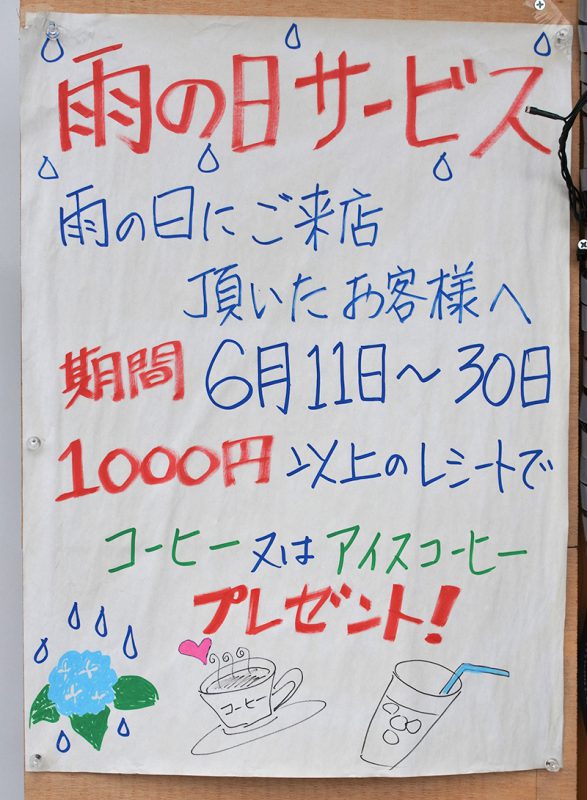 雨の日サービス
雨の日にご来店
頂いたお客様へ
期間 6月11日〜30日
1000円以上のレシートで
コーヒー又はアイスコーヒー
プレゼント!
コーヒー